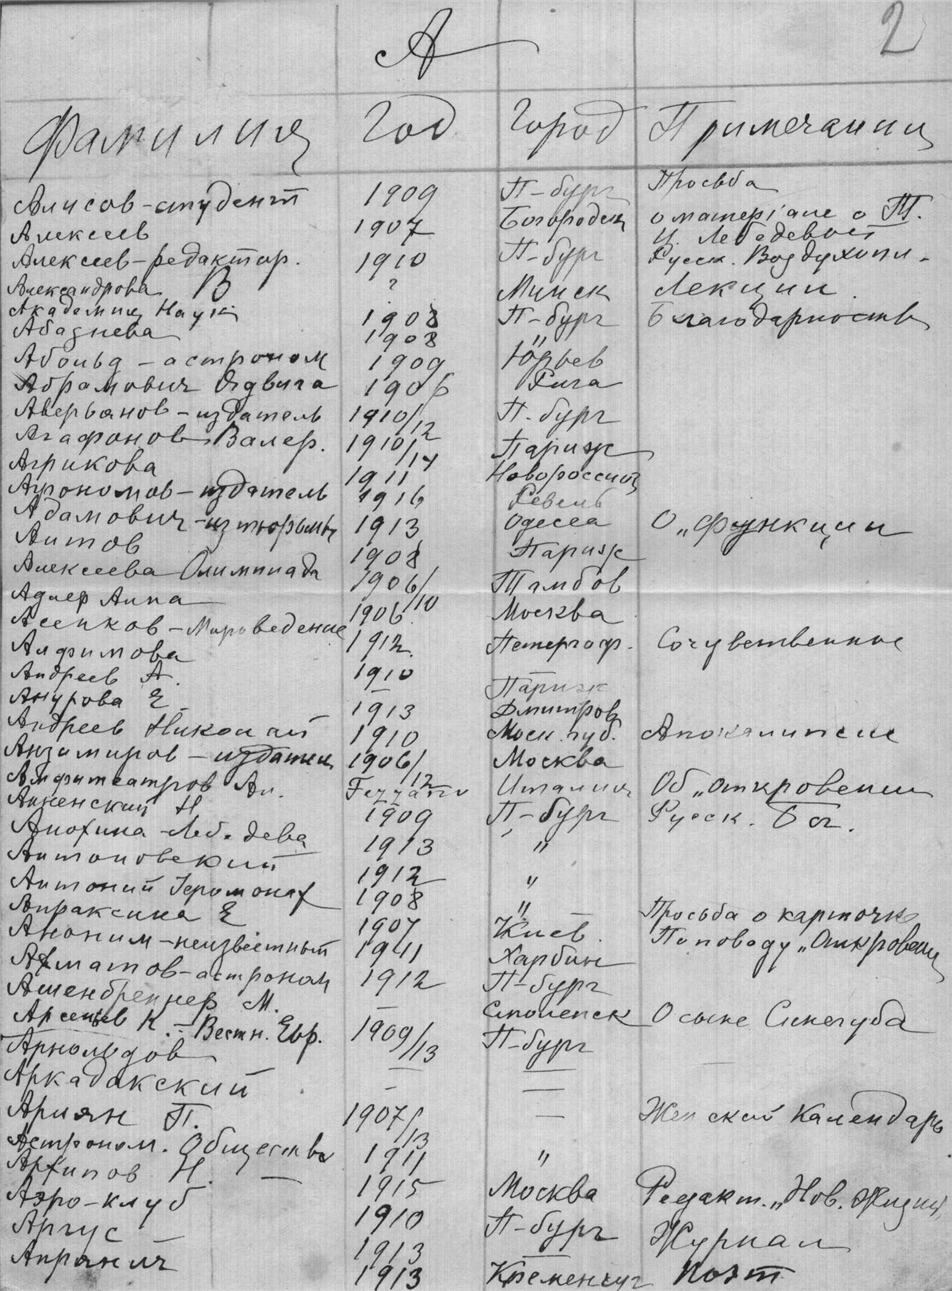 А 2
Фамилия Год Город Примечания
Алисов-студент 1909 П-бург Просьба
Алексеев 1907 Богородск о матерiале о Т.
Алексеев-редактор. 1910 П-бург Русск. Воздухопл.
Александрова В ? Минск Лекции
Академия Наук 1908 П-бург Благодарность
Абазнева 1908 "
Абольд - астроном 1909 Юрьев
Абрамович Ядвига 1906 Рига
Аверьянов-издатель 1910/12 П-бург
Агафонов Валер. 1910/14 Париж
Агрикова 1911 Новороссийск
Агрономов-издатель 1916 Ревель
Адамович-из тюрьмы 1913 Одесса О „функции
Аитов 1908 Париж
Алексеева Олимпиада 1906/10 Тамбов
Адлер Анна 1906 Москва
Асенков-Мироведение 1912 Петергоф. Сочувственное
Алфимова 1910
Андреев А. — Париж
Анурова Е 1913 Дмитров
Андреев Николай 1910 Моск. губ. Апокалипсис
Анзимиров - издатель 1906/12 Москва
Амфитеатров Ал. Fezzano Италия Об „Откровении
Анненский Н 1909 П-бург Русск. Бог.
Анофина-Лебедева 1913 "
Антоновский 1912 "
Антоний Iеромонах 1908 "
Апраксина Е 1907 Киев Просьба о карточке
Аноним-неизвестный 1911 Харбин По поводу „Откровен
Ахматов-астроном 1912 П-бург
Ашенбреннер М. — Смоленск О сыне
Арсеньев К. - Вестн. Евр. 1909/13 П-бург
Арнольдов — —
Аркадакский — —
Ариян П. 1907/13 — Женский Календарь
Астроном. Общество 1911 "
Архипов Н. — 1915 Москва Редакт. „Нов. Жизни
Аэро-клуб 1910 П-бург
Аргус 1913 Журнал
Апрянич 1913 Кременчуг Поэт